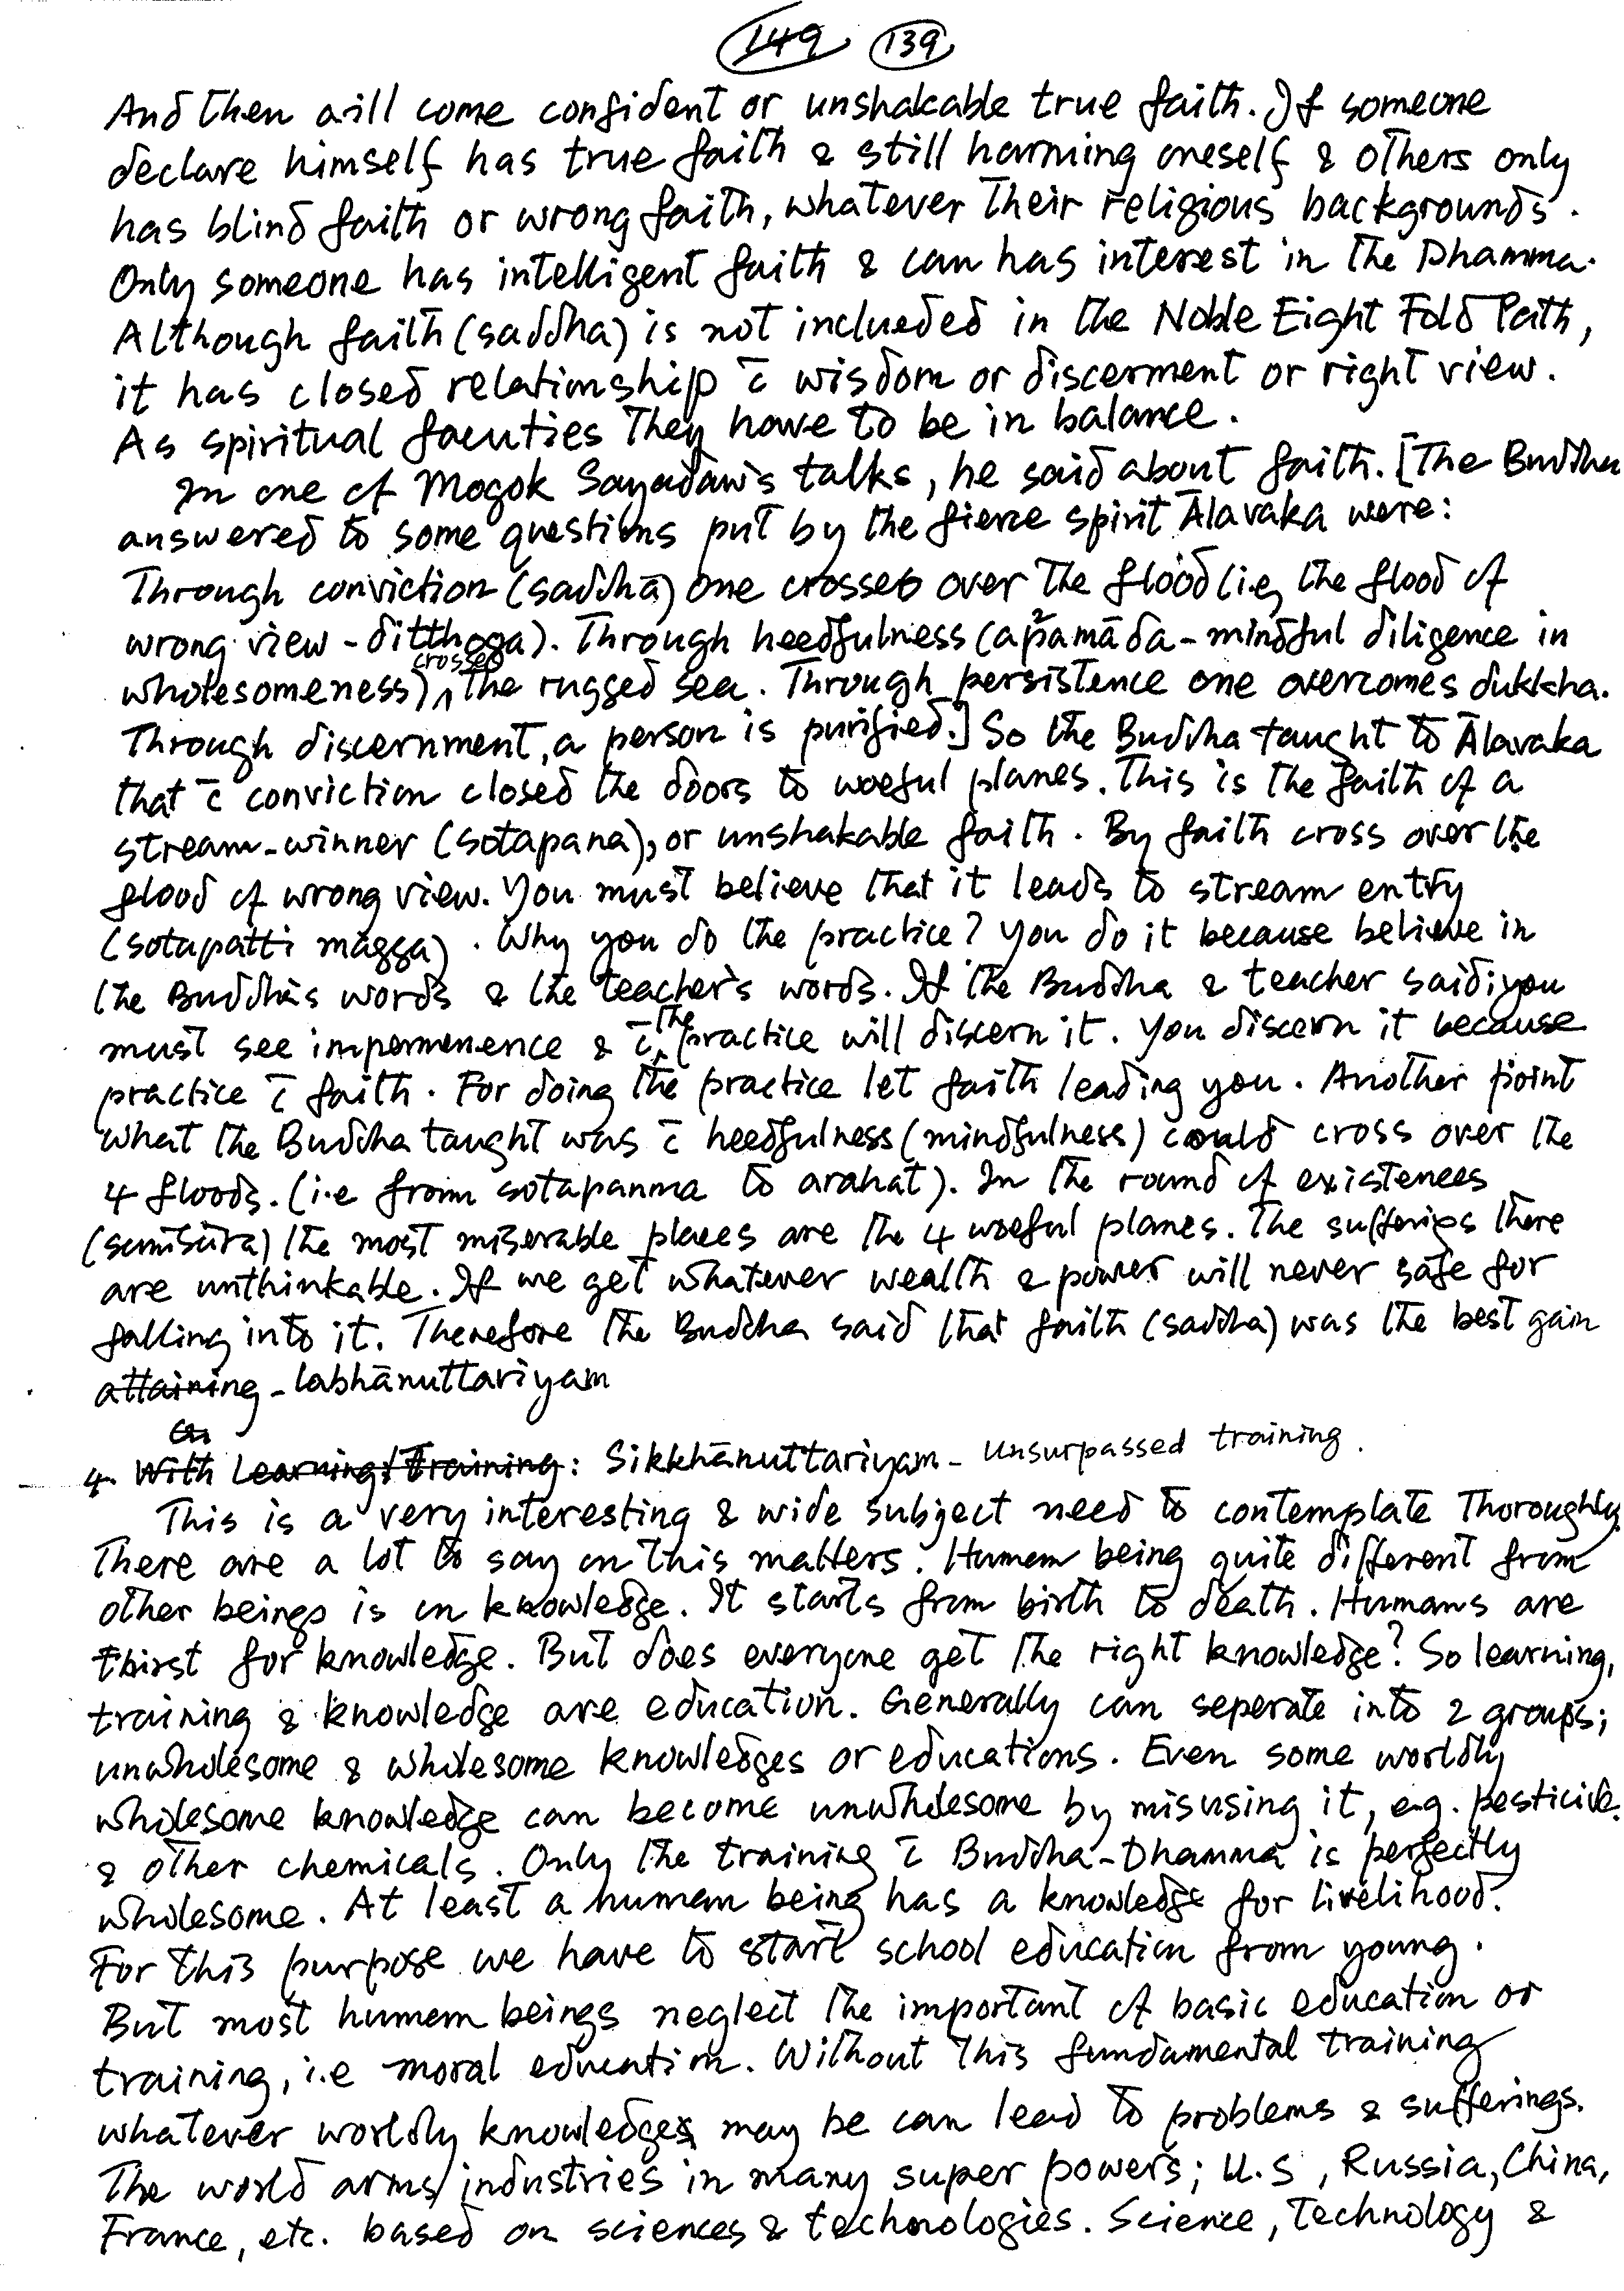 149 139
And then will come confident or unshakable true faith. If someone
declare himself has true faith & still harming oneself & others only
has blind faith or wrong faith, whatever their religious backgrounds.
Only someone has intelligent faith & can has interest in the Dhamma.
Although faith (saddha) is not inclueded in the Noble Eight Fold Path,
it has closed relationship c̄ wisdom or discernment or right view.
As spiritual facuties they have to be in balance.
In one of Mogok Sayadaw's talks, he said about faith. [The Buddha
answered to some questions put by the fierce spirit Ālavaka were:
Through conviction (saddhā) one crosses over the flood (i.e, the flood of
wrong view - ditthoga). Through heedfulness (appamāda - mindful diligence in
wholesomeness) crosses the rugged sea. Through persistence one overcomes dukkha.
Through discernment, a person is purified.] So the Buddha taught to Ālavaka
that c̄ conviction closed the doors to woeful planes. This is the faith of a
stream-winner (sotapana), or unshakable faith. By faith cross over the
flood of wrong view. You must believe that it leads to stream entry
(sotapatti magga). Why you do the practice? You do it because believe in
the Buddha's words & the teacher's words. If the Buddha & teacher said; you
must see impermenence & c̄ the practice will discern it. You discern it because
practice c̄ faith. For doing the practice let faith leading you. Another point
what the Buddha taught was c̄ heedfulness (mindfulness) could cross over the
4 floods. (i.e from sotapanna to arahat). In the round of existences
(samsāra) the most miserable places are the 4 woeful planes. The sufferings there
are unthinkable. If we get whatever wealth & power will never safe for
falling into it. Therefore the Buddha said that faith (saddha) was the best gain
attaining - labhānuttariyam
On
4. With Learning/Training: Sikkhānuttariyam - Unsurpassed training.
This is a very interesting & wide subject need to contemplate thoroughly.
There are a lot to say on this matters. Human being quite different from
other beings is on knowledge. It starts from birth to death. Humans are
thirst for knowledge. But does everyone get the right knowledge? So learning,
training & knowledge are education. Generally can seperate into 2 groups;
unwholesome & wholesome knowledges or educations. Even some worldly
wholesome knowledge can become unwholesome by misusing it, e.g. pesticide
& other chemicals. Only the training c̄ Buddha-Dhamma is perfectly
wholesome. At least a human being has a knowledge for livelihood.
For this purpose we have to start school education from young.
But most human beings neglect the important of basic education or
training, i.e moral education. Without this fundamental training
whatever worldly knowledges may be can lead to problems & sufferings.
The world arms industries in many super powers; U.S, Russia, China,
France, etc. based on sciences & technologies. Science, Technology &